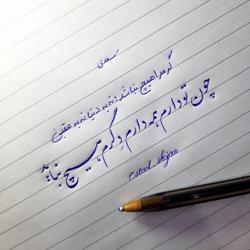 سعدی
گر مرا هیچ نباشد نه به دنیا نه به عقبی
چون تو دارم همه دارم دگرم هیچ نباید